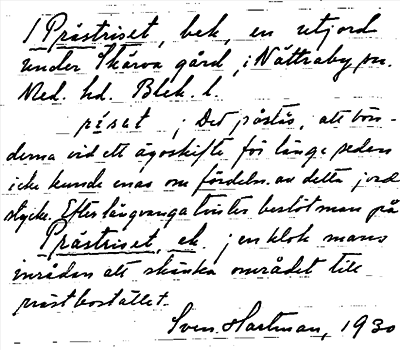 1 Prästriset, bek, en utjord
under Skärva gård, i Nättraby sn.
Med. hd. Blek. l.
ri̇set ; Det påstås, att bön-
derna vid ett ägoskifte för länge sedan
icke kunde enas om fördeln. av detta jord
stycke. Efter långvariga tvister beslöt man på
Prästriset, ek. ; en klok mans
inrådan att skänka området till
prästbostället.
Sven Hartman, 1930